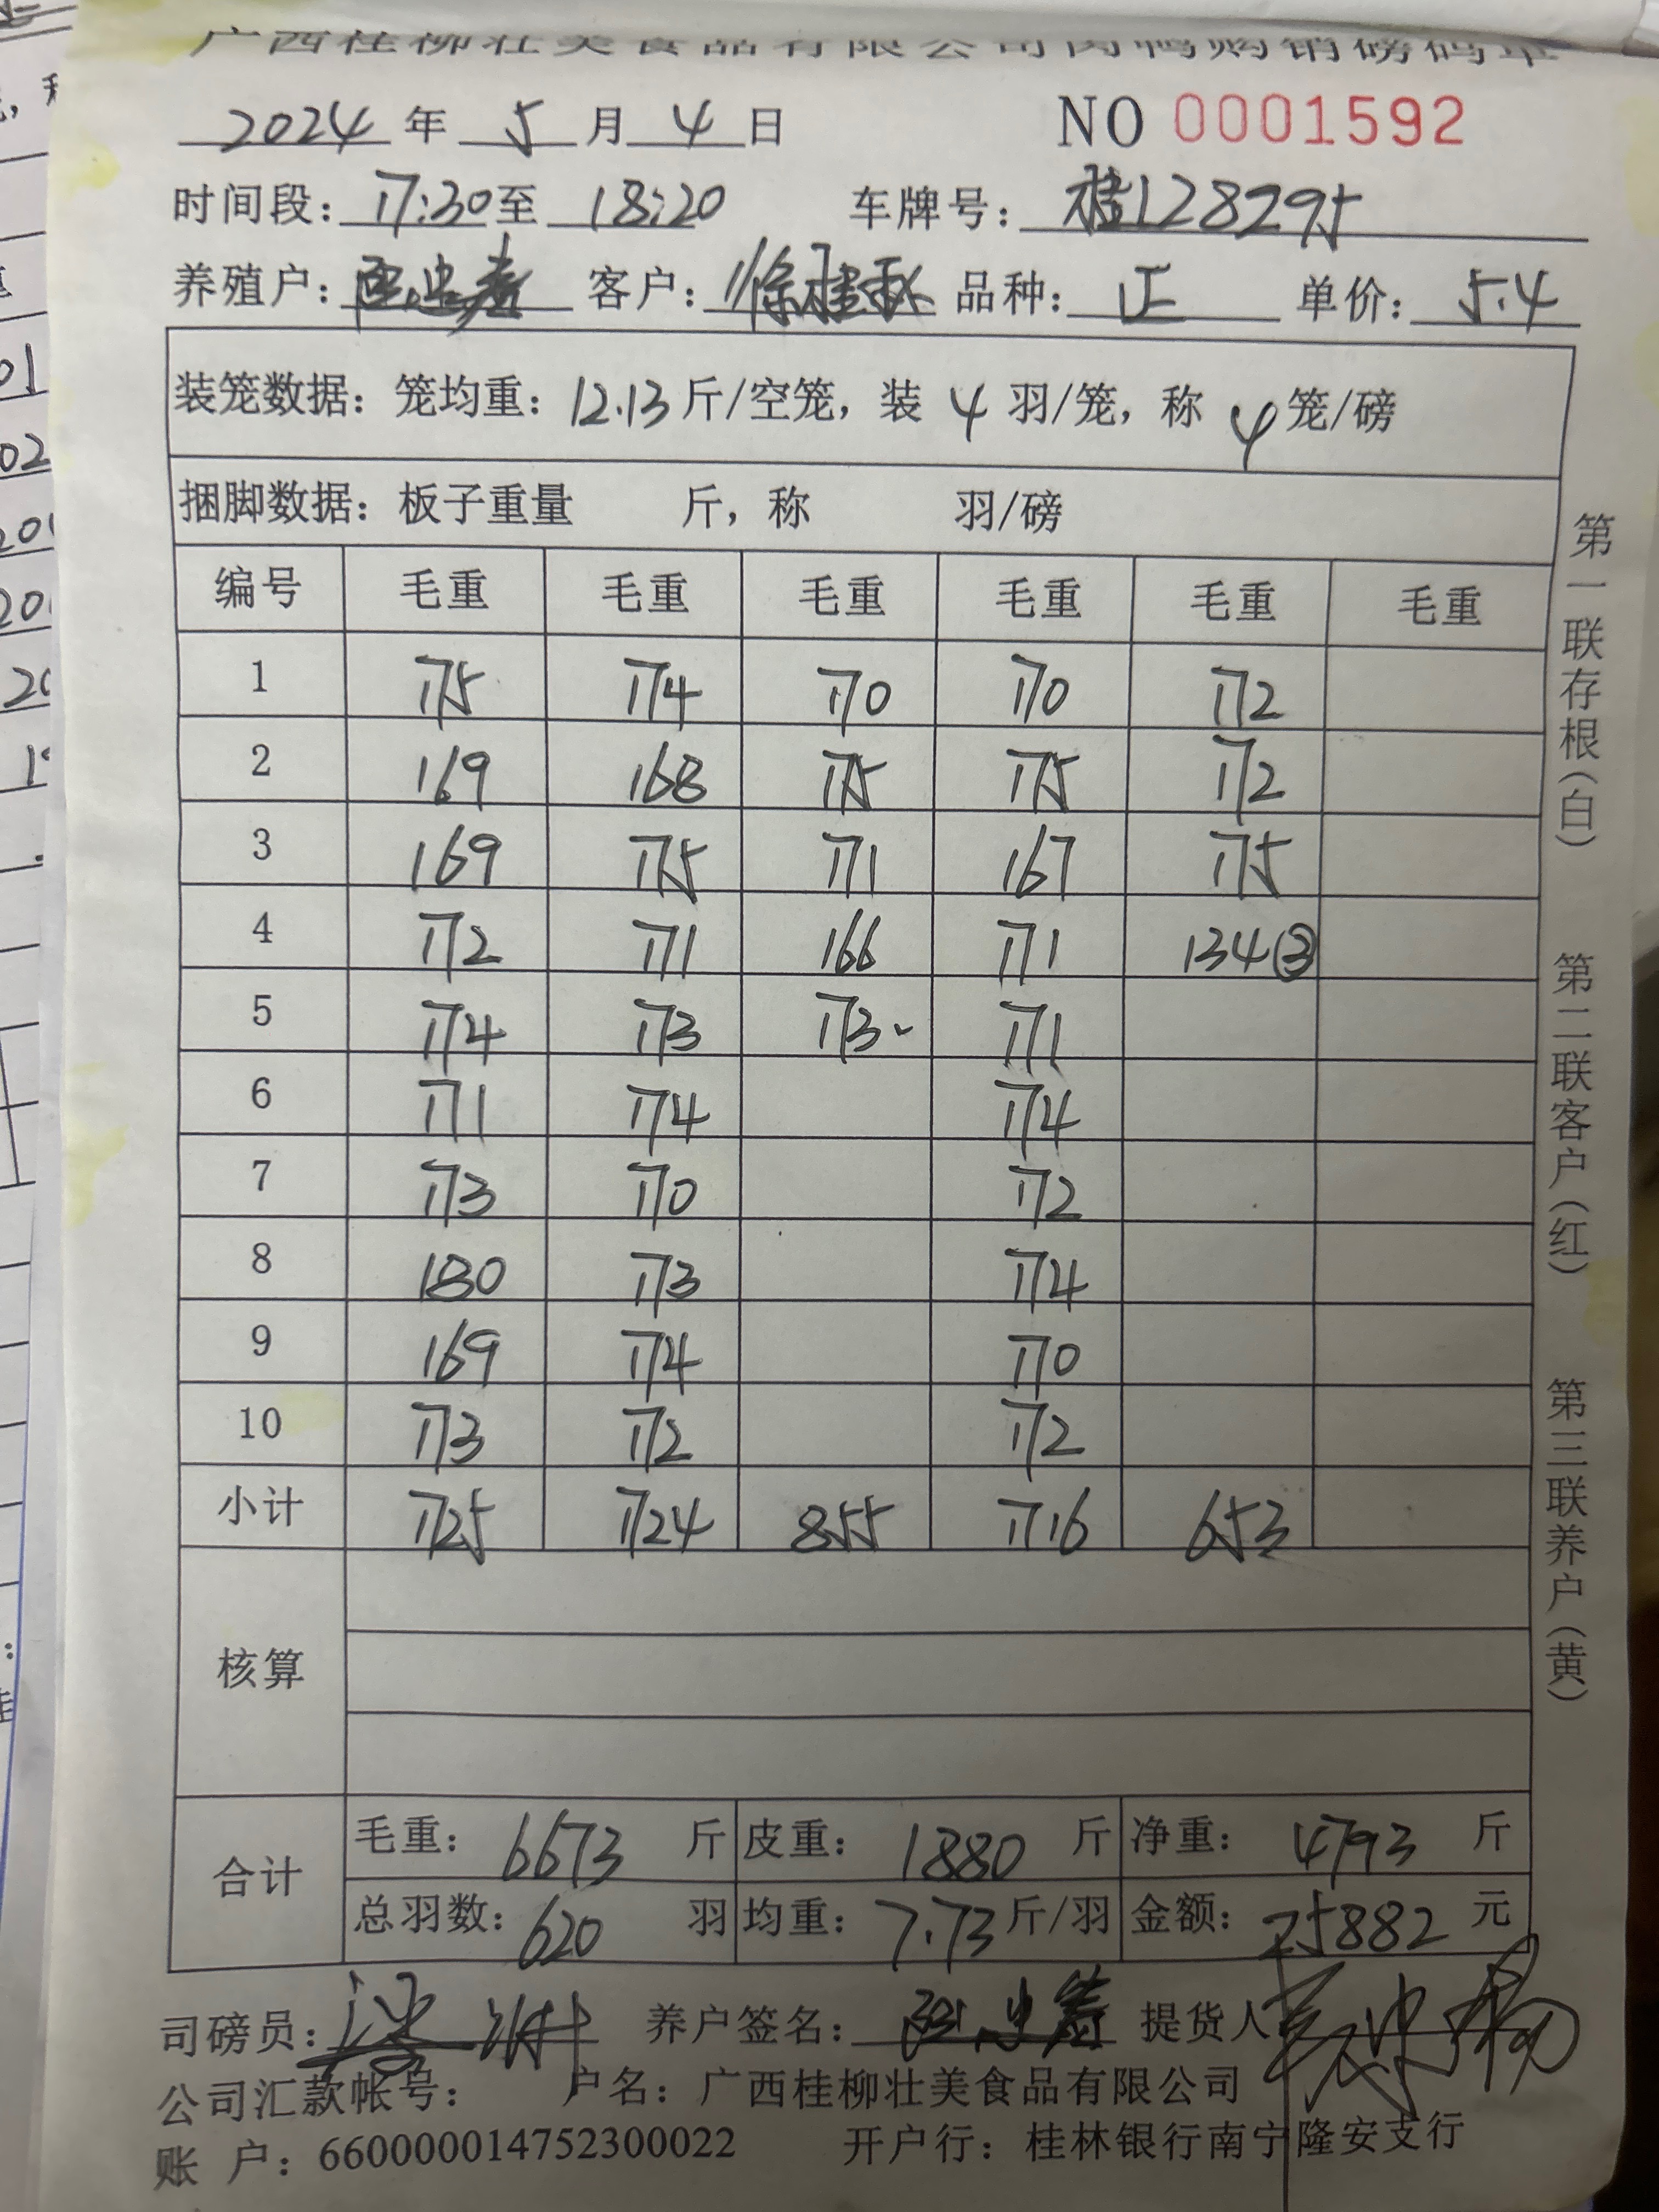 广西桂柳壮美食品有限公司肉鸭购销磅码单
2024 年 5 月 4 日 NO 0001592
时间段: 17:30 至 18:20 车牌号: 桂128295
养殖户: 客户: 徐桂秋 品种: 正 单价: 5.4
装笼数据: 笼均重: 12.13 斤/空笼, 装 4 羽/笼, 称 4 笼/磅
捆脚数据: 板子重量 斤, 称 羽/磅
编号 毛重 毛重 毛重 毛重 毛重 毛重
1 175 174 170 170 172
2 169 168 175 175 172
3 169 175 171 167 175
4 172 171 166 171 134 ③
5 174 173 173 171
6 171 174 174
7 173 170 172
8 180 173 174
9 169 174 170
10 173 172 172
小计 1725 1724 855 1716 653
核算
合计 毛重: 6673 斤 皮重: 1880 斤 净重: 4793 斤
总羽数: 620 羽 均重: 7.73 斤/羽 金额: 25882 元
司磅员: 养户签名: 提货人
公司汇款帐号: 户名: 广西桂柳壮美食品有限公司
账 户: 660000014752300022 开户行: 桂林银行南宁隆安支行
第一联存根(白) 第二联客户(红) 第三联养户(黄)